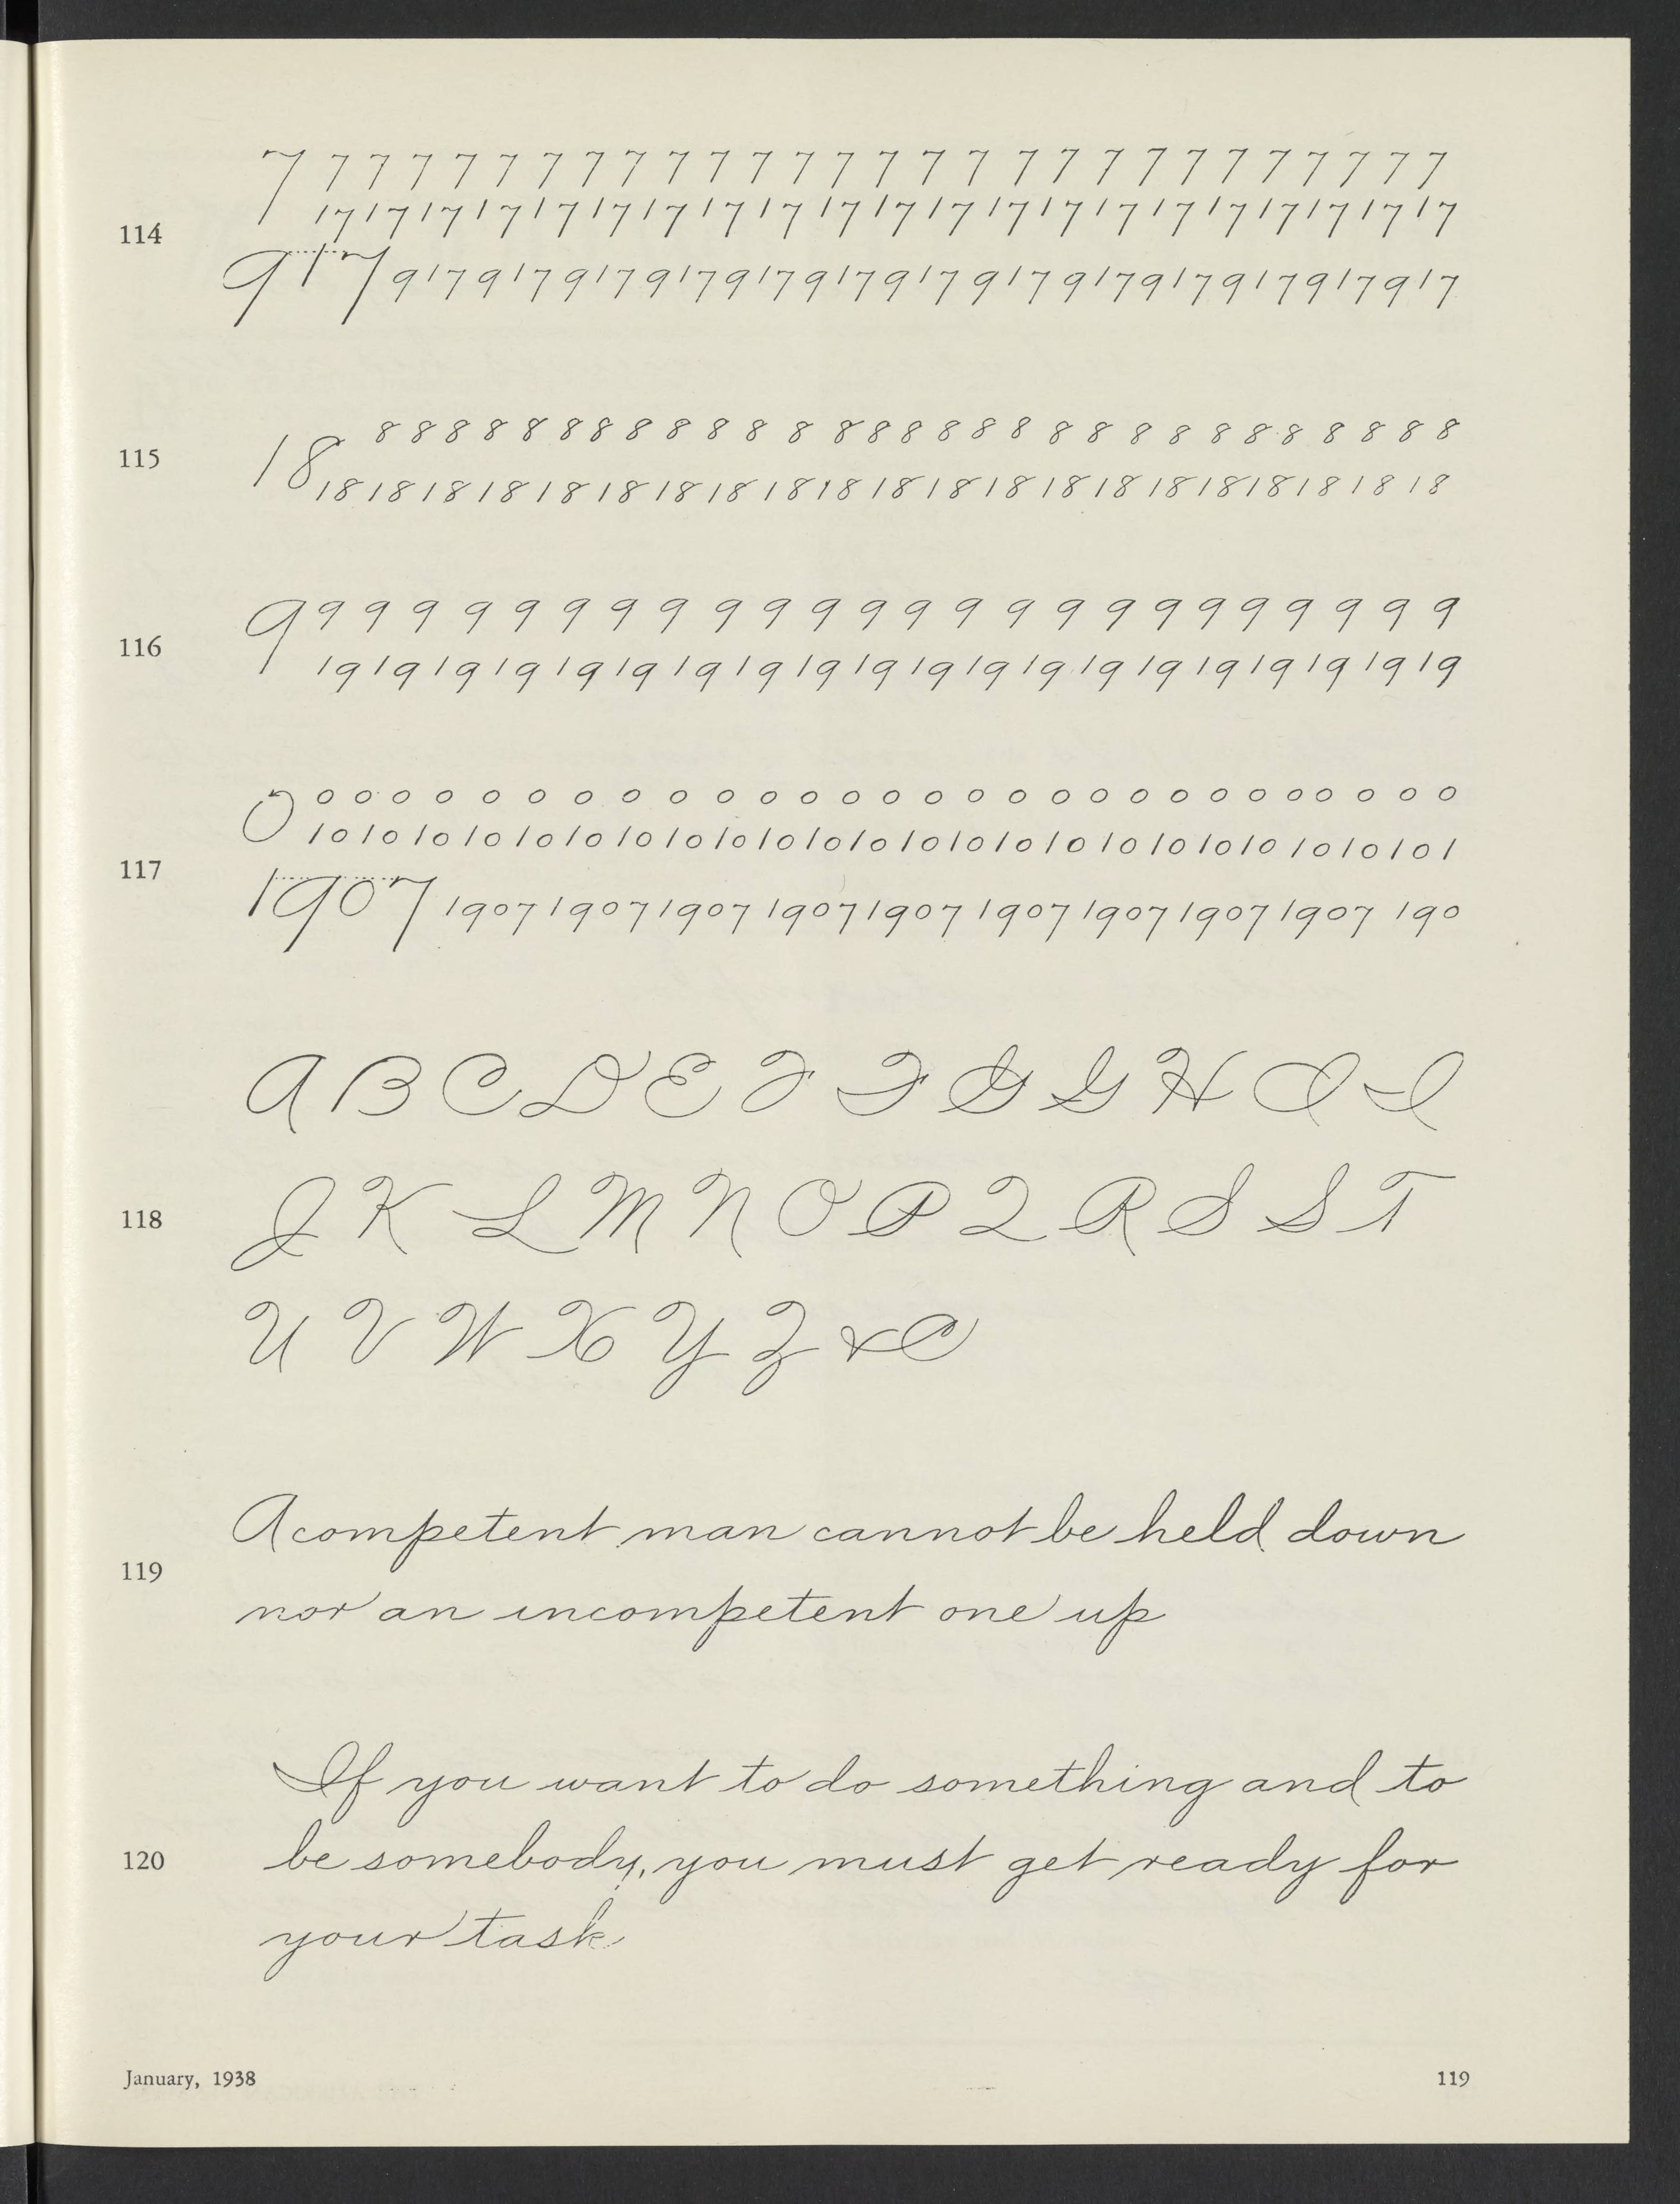 7 7 7 7 7 7 7 7 7 7 7 7 7 7 7 7 7 7 7 7 7 7 7 7 7 7 7 7
17 17 17 17 17 17 17 17 17 17 17 17 17 17 17 17 17 17 17 17 17
114
917 917 917 917 917 917 917 917 917 917 917 917 917 917
8 8 8 8 8 8 8 8 8 8 8 8 8 8 8 8 8 8 8 8 8 8 8 8 8 8 8 8 8
115
18
18 18 18 18 18 18 18 18 18 18 18 18 18 18 18 18 18 18 18 18 18
9 9 9 9 9 9 9 9 9 9 9 9 9 9 9 9 9 9 9 9 9 9 9 9 9
116
19 19 19 19 19 19 19 19 19 19 19 19 19 19 19 19 19 19 19 19
0 0 0 0 0 0 0 0 0 0 0 0 0 0 0 0 0 0 0 0 0 0 0 0 0 0 0 0 0
10 10 10 10 10 10 10 10 10 10 10 10 10 10 10 10 10 10 10 10 10 10 10 1
117
1907 1907 1907 1907 1907 1907 1907 1907 1907 1907 190
A B C D E F F G G H I I
118
J K L M N O P Q R S S T
U V W X Y Z & C
A competent man cannot be held down
119
nor an incompetent one up
If you want to do something and to
120
be somebody, you must get ready for
your task
January, 1938
119